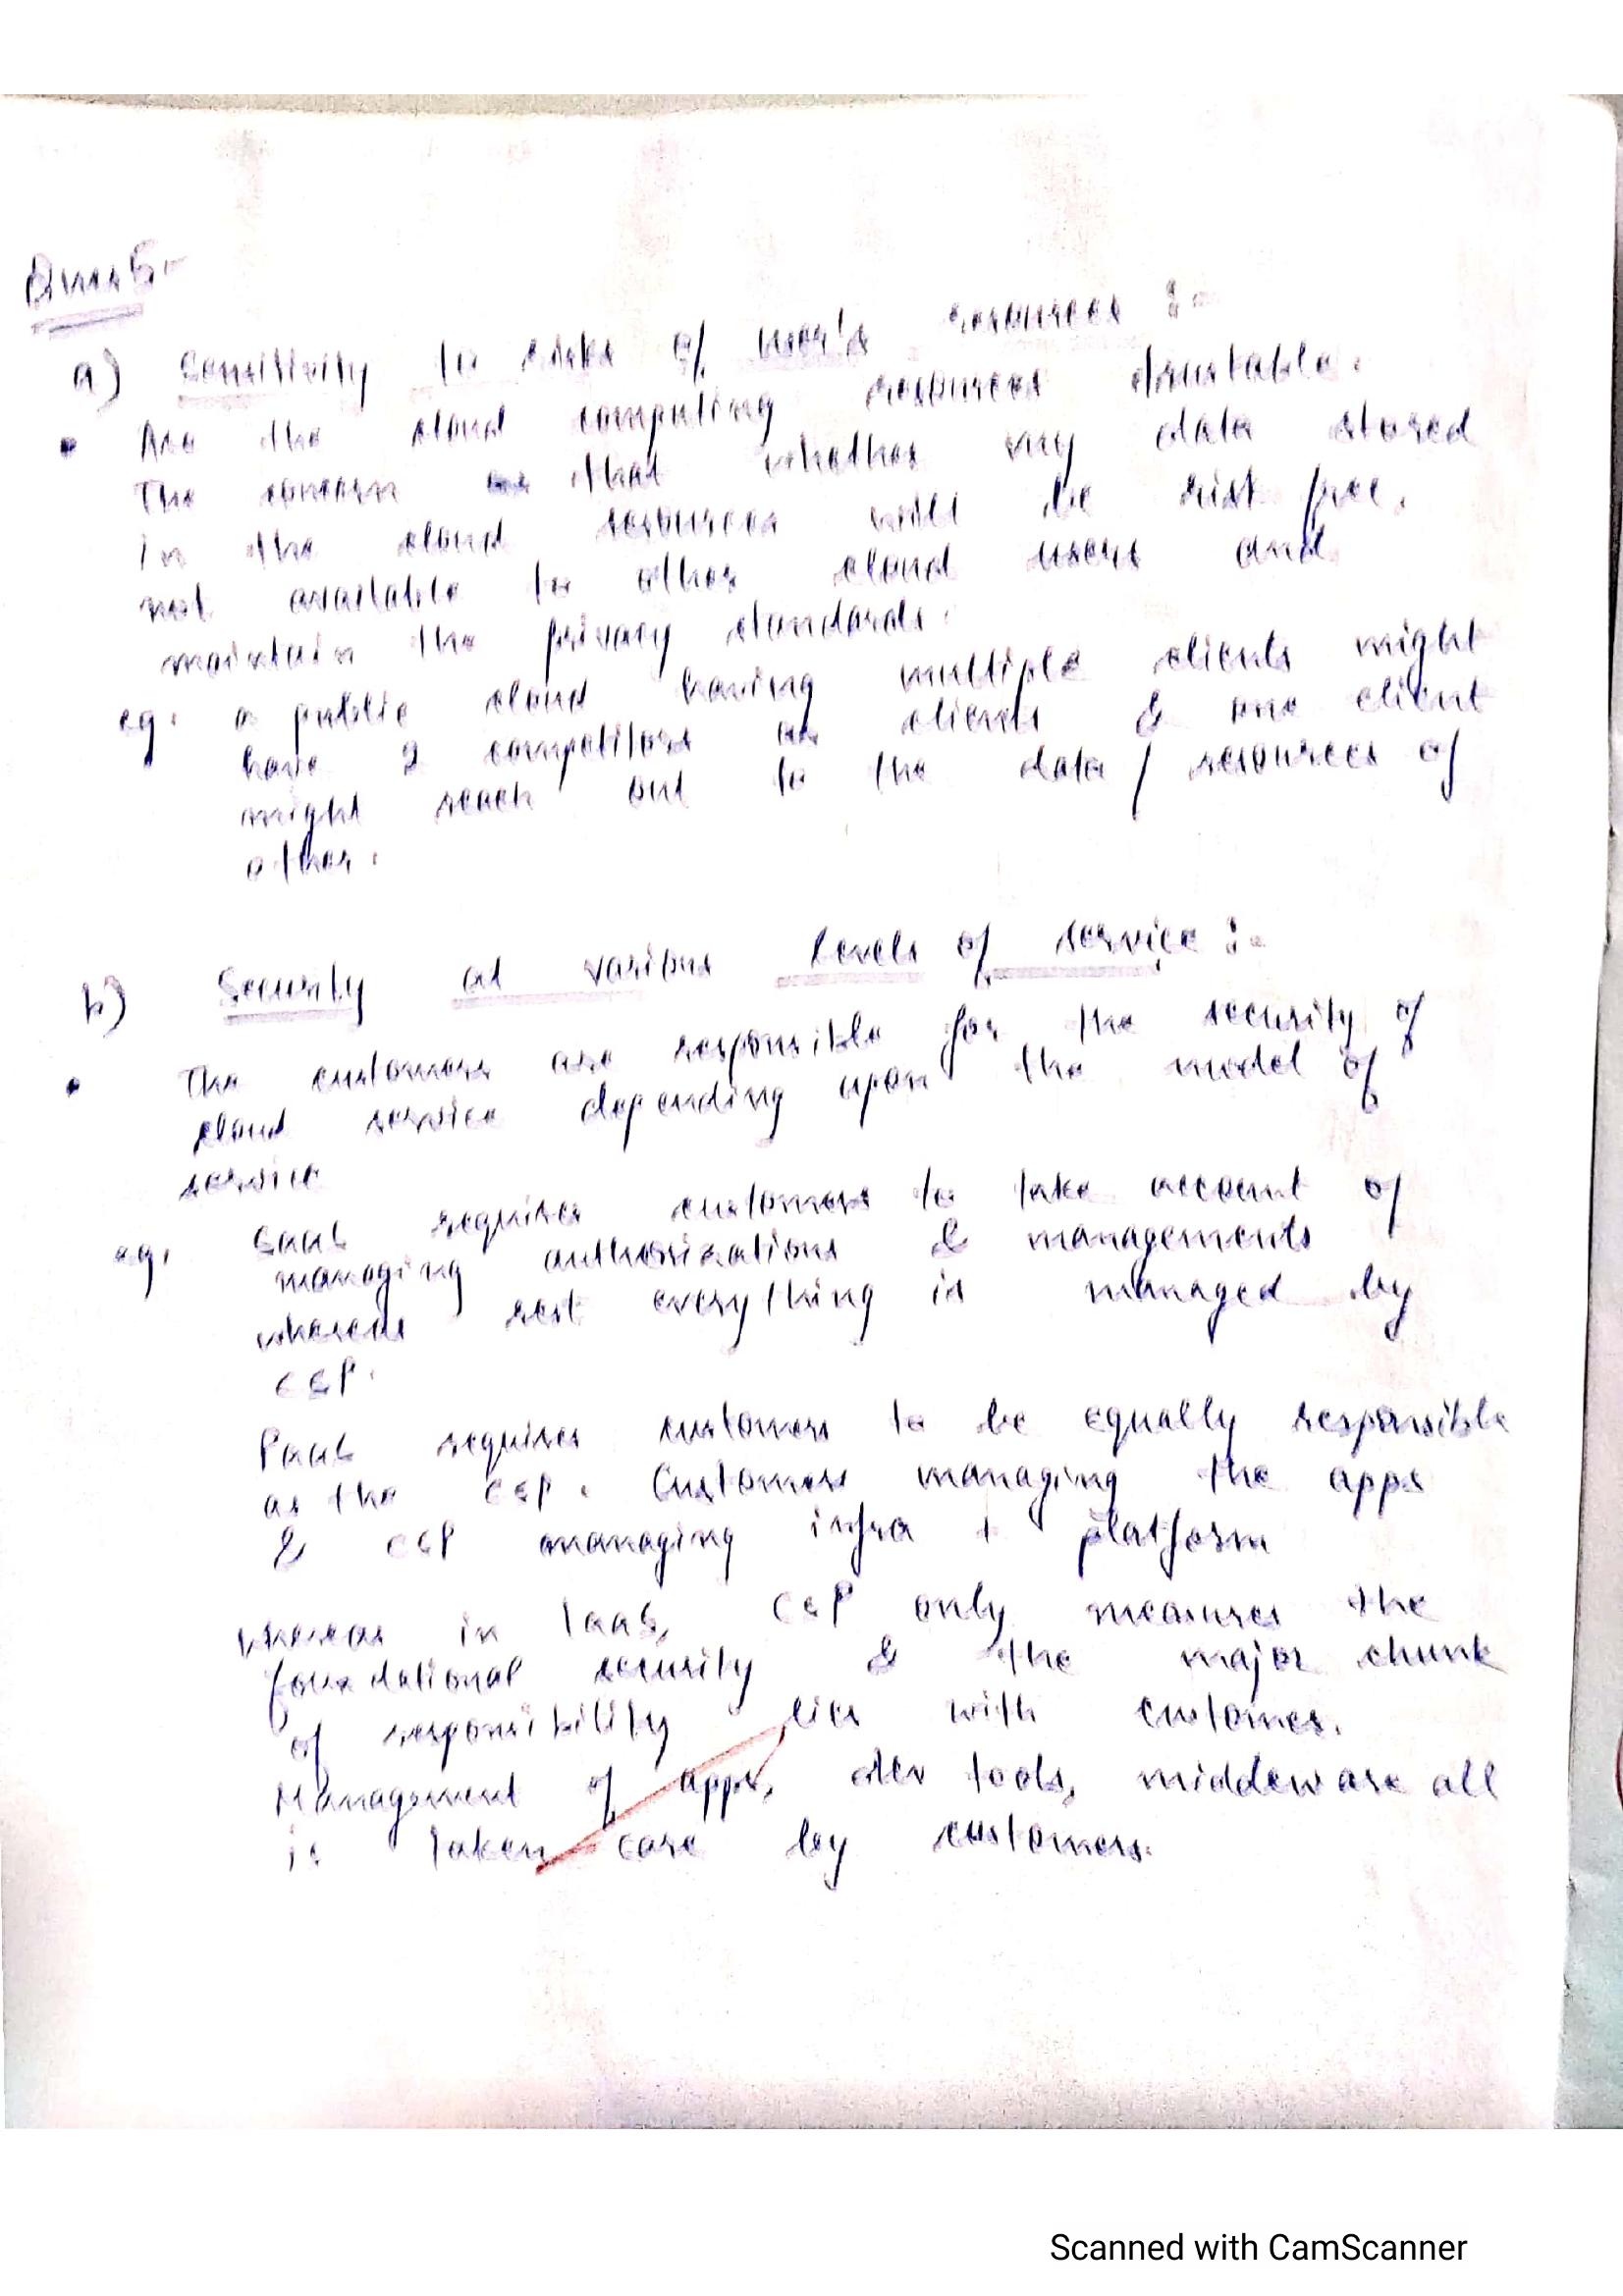 Ques 5-
a) Sensitivity to risks of user's resources :-
• Are the cloud computing resources trustable.
The concern is that whether my data stored
in the cloud resources will be risk free,
not available to other cloud users and
maintain the privacy standards.
eg. a public cloud having multiple clients might
have 2 competitors as clients & one client
might reach out to the data / resources of
other.
b) Security at various levels of service :-
• The customers are responsible for the security of
cloud service depending upon the model of
service
eg. SaaS requires customers to take account of
managing authorisations & managements
whereas rest everything is managed by
CSP.
PaaS requires customers to be equally responsible
as the CSP. Customers managing the apps
& CSP managing infra + platform
whereas in IaaS, CSP only measures the
foundational security & the major chunk
of responsibility lies with customer.
Management of apps, dev tools, middleware all
is taken care by customers.
Scanned with CamScanner